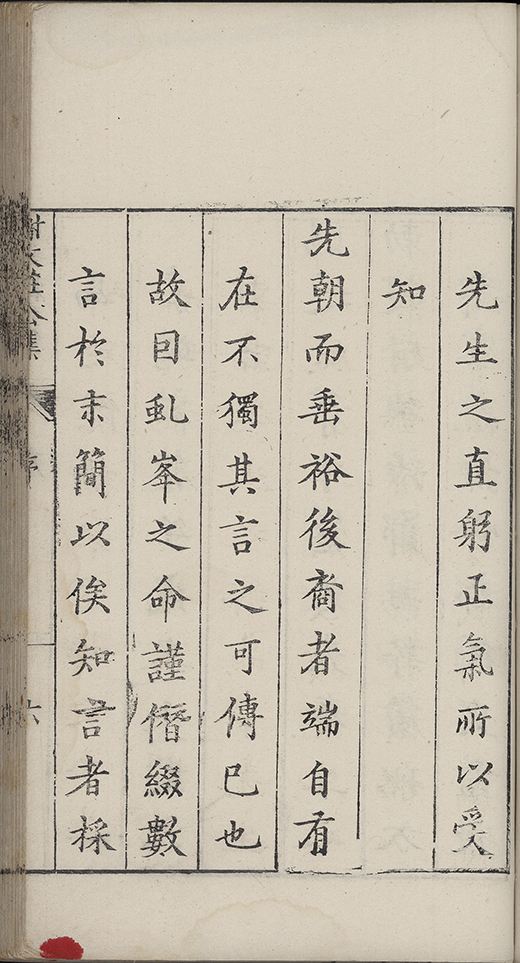 先生之直躬正氣所以受
知
先朝而垂裕後裔者端自有
在不獨其言之可傳已也
故因虬峯之命謹僭綴數
言於末簡以俟知言者採
序
六